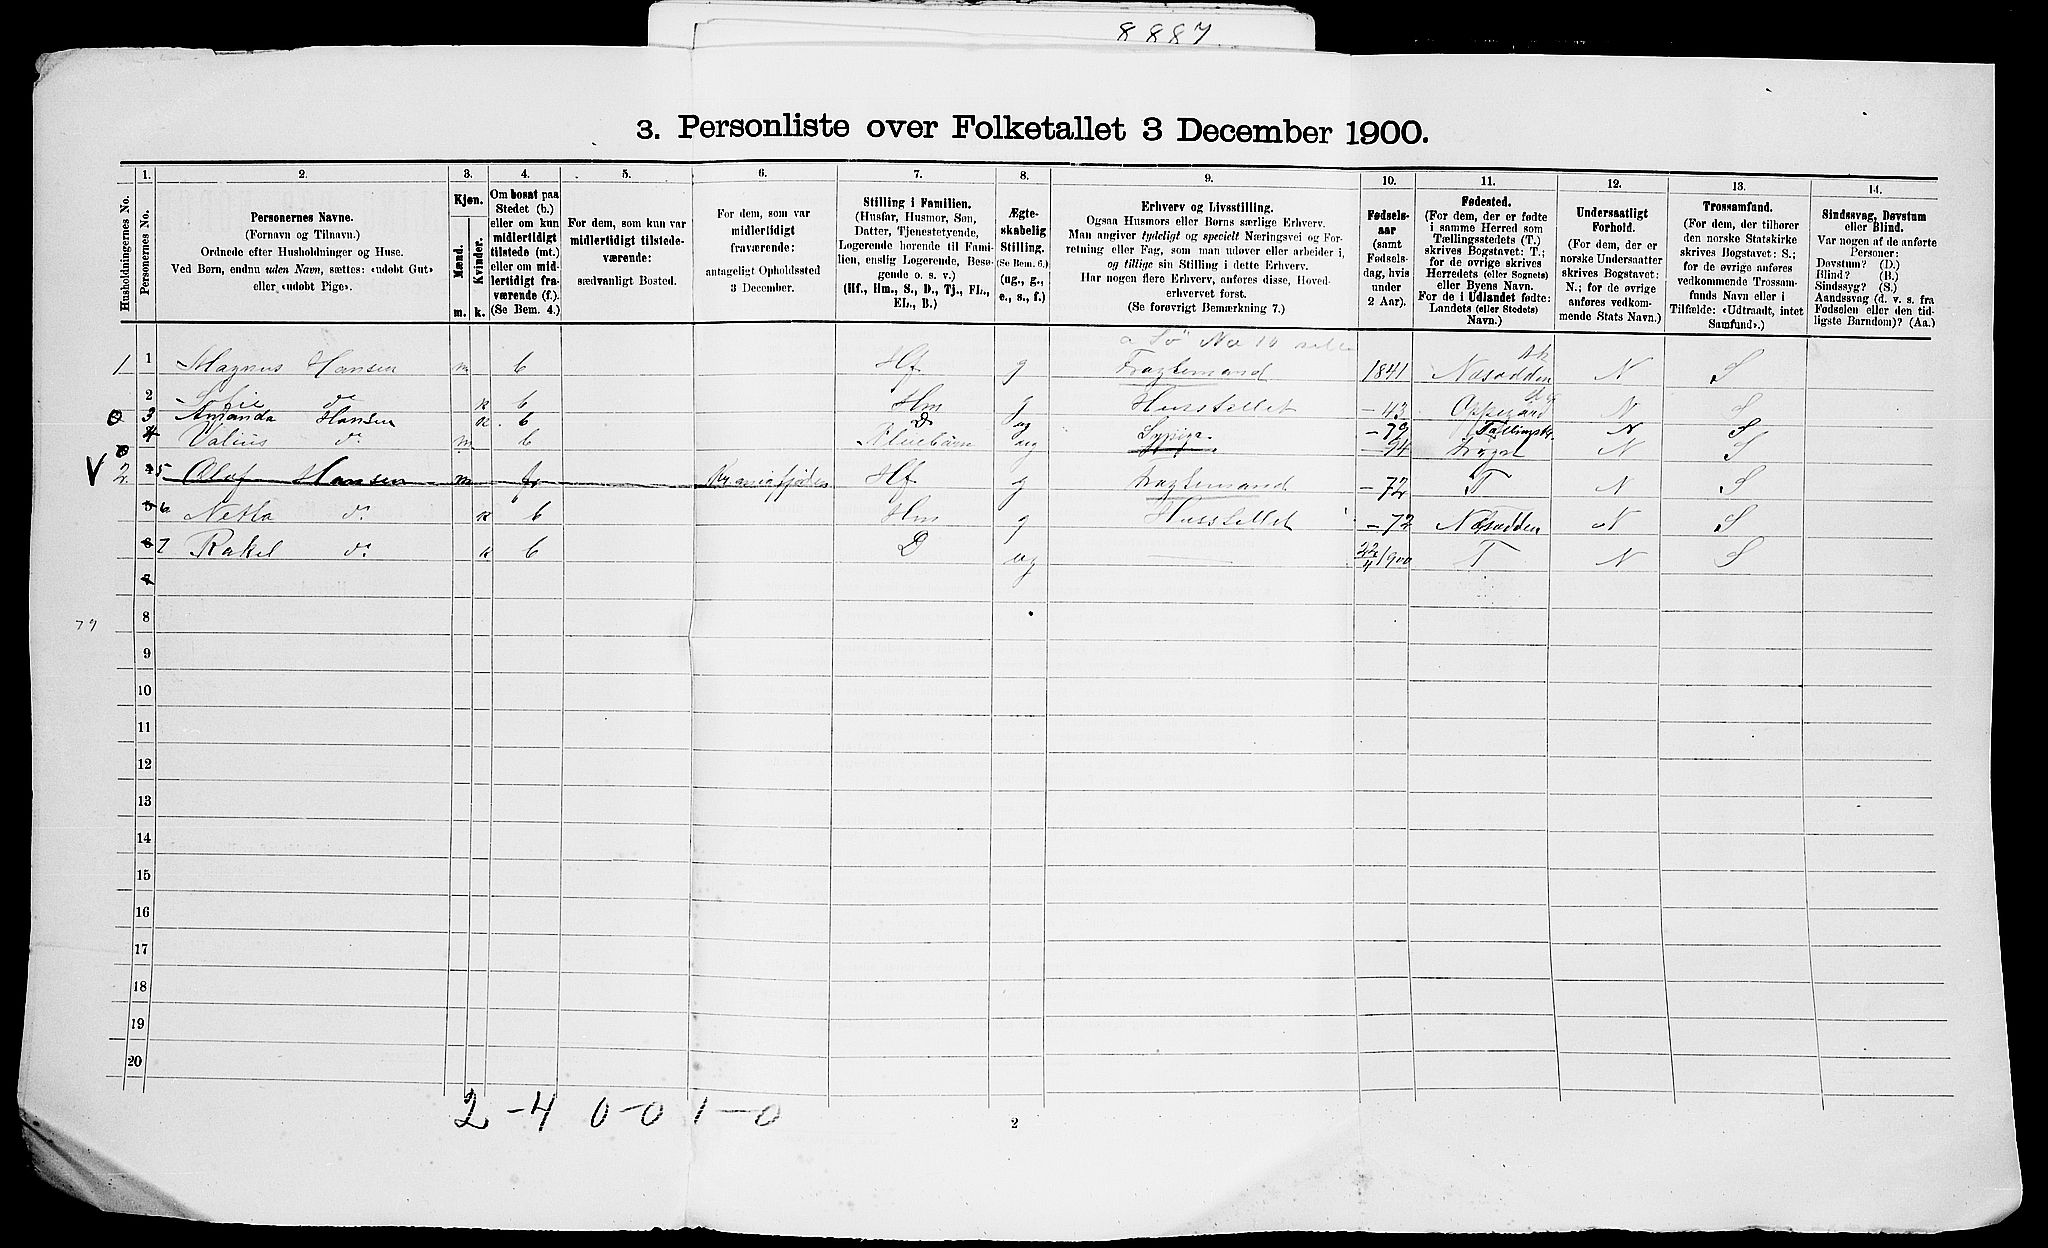 8887
3. Personliste over Folketallet 3 December 1900.
Husholdningernes No.
1.
Personernes No.
2.
Personernes Navne.
(Fornavn og Tilnavn.)
Ordnede efter Husholdninger og Huse.
Ved Børn, endnu uden Navn, sættes: «udøbt Gut»
eller «udøbt Pige».
3.
Kjøn.
Mænd.
Kvinder.
m.
k.
4.
Om bosat paa
Stedet (b.)
eller om kun
midlertidigt
tilstede (mt.)
eller om mid-
lertidigt fra-
værende (f.).
(Se Bem. 4.)
5.
For dem, som kun var
midlertidigt tilstede-
værende:
sædvanligt Bosted.
6.
For dem, som var
midlertidigt
fraværende:
antageligt Opholdssted
3 December.
7.
Stilling i Familien.
(Husfar, Husmor, Søn,
Datter, Tjenestetyende,
Logerende hørende til Fami-
lien, enslig Logerende, Besø-
gende o. s. v.)
(Hf., Hm., S., D., Tj., FL.,
EL., B.)
8.
Ægte-
skabelig
Stilling.
(Se Bem. 6.)
(ug., g.,
e., s., f.)
9.
Erhverv og Livsstilling.
Ogsaa Husmors eller Børns særlige Erhverv.
Man angiver tydeligt og specielt Næringsvei og For-
retning eller Fag, som man udøver eller arbeider i,
og tillige sin Stilling i dette Erhverv.
Har nogen flere Erhverv, anføres disse, Hoved-
erhvervet først.
(Se forøvrigt Bemærkning 7.)
10.
Fødsels-
aar
(samt
Fødsels-
dag, hvis
under
2 Aar).
11.
Fødested.
(For dem, der er fødte
i samme Herred som
Tællingsstedets (T.)
skrives Bogstavet: T.;
for de øvrige skrives
Herredets (eller Sognets)
eller Byens Navn.
For de i Udlandet fødte:
Landets (eller Stedets)
Navn.)
12.
Undersaatligt
Forhold.
(For dem, der er
norske Undersaatter
skrives Bogstavet:
N.; for de øvrige
anføres vedkom-
mende Stats Navn.)
13.
Trossamfund.
(For dem, der tilhører
den norske Statskirke
skrives Bogstavet: S.;
for de øvrige anføres
vedkommende Trossam-
funds Navn eller i
Tilfælde: «Udtraadt, intet
Samfund».)
14.
Sindssvag, Døvstum
eller Blind.
Var nogen af de anførte
Personer:
Døvstum? (D.)
Blind? (B.)
Sindssyg? (S.)
Aandssvag (d. v. s. fra
Fødselen eller den tid-
ligste Barndom)? (Aa.)
1 1 Magnus Hansen m b Hf g Fragtemand 1841 Næsodden N S
2 Sofie do k b Hm g Husstellet – 43 Oppegaard N S
3 Amanda Hansen k b D ug Sypige – 79 Tællingsst. N S
4 Valius do m b Pleiebarn ug – 94 N S
V 2 5 Olaf Hansen m f Kr.aniafjorden Hf g Fragtemand – 72 T N S
6 Netta do k b Hm g Husstellet – 72 Næsodden N S
7 Rakel do k b D ug 22/4 1900 T N S
7
79
8
9
10
11
12
13
14
15
16
17
18
19
20
2–4 0–0 1–0
2